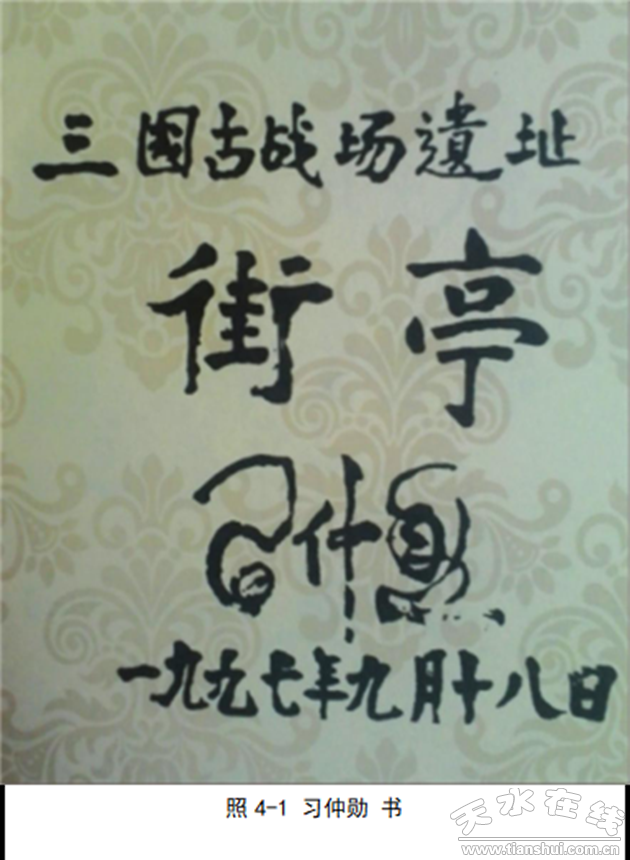 三国古战场遺址
街亭
习仲勋
一九九七年九月十八日
照4-1 习仲勋 书
天水在线
www.tianshui.com.cn